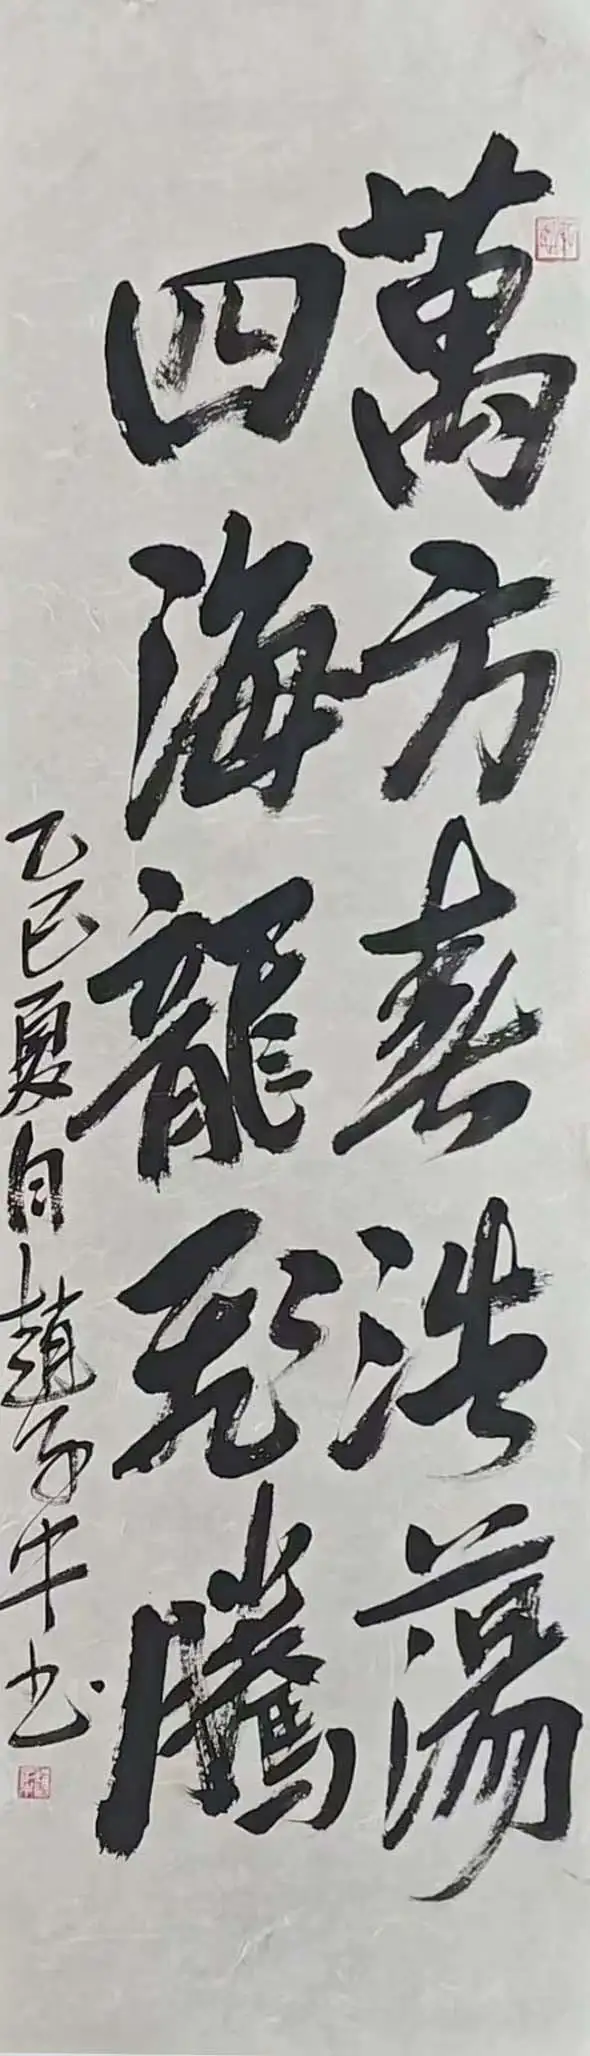 萬方春浩蕩
四海龍飛騰
乙巳夏月趙子牛书